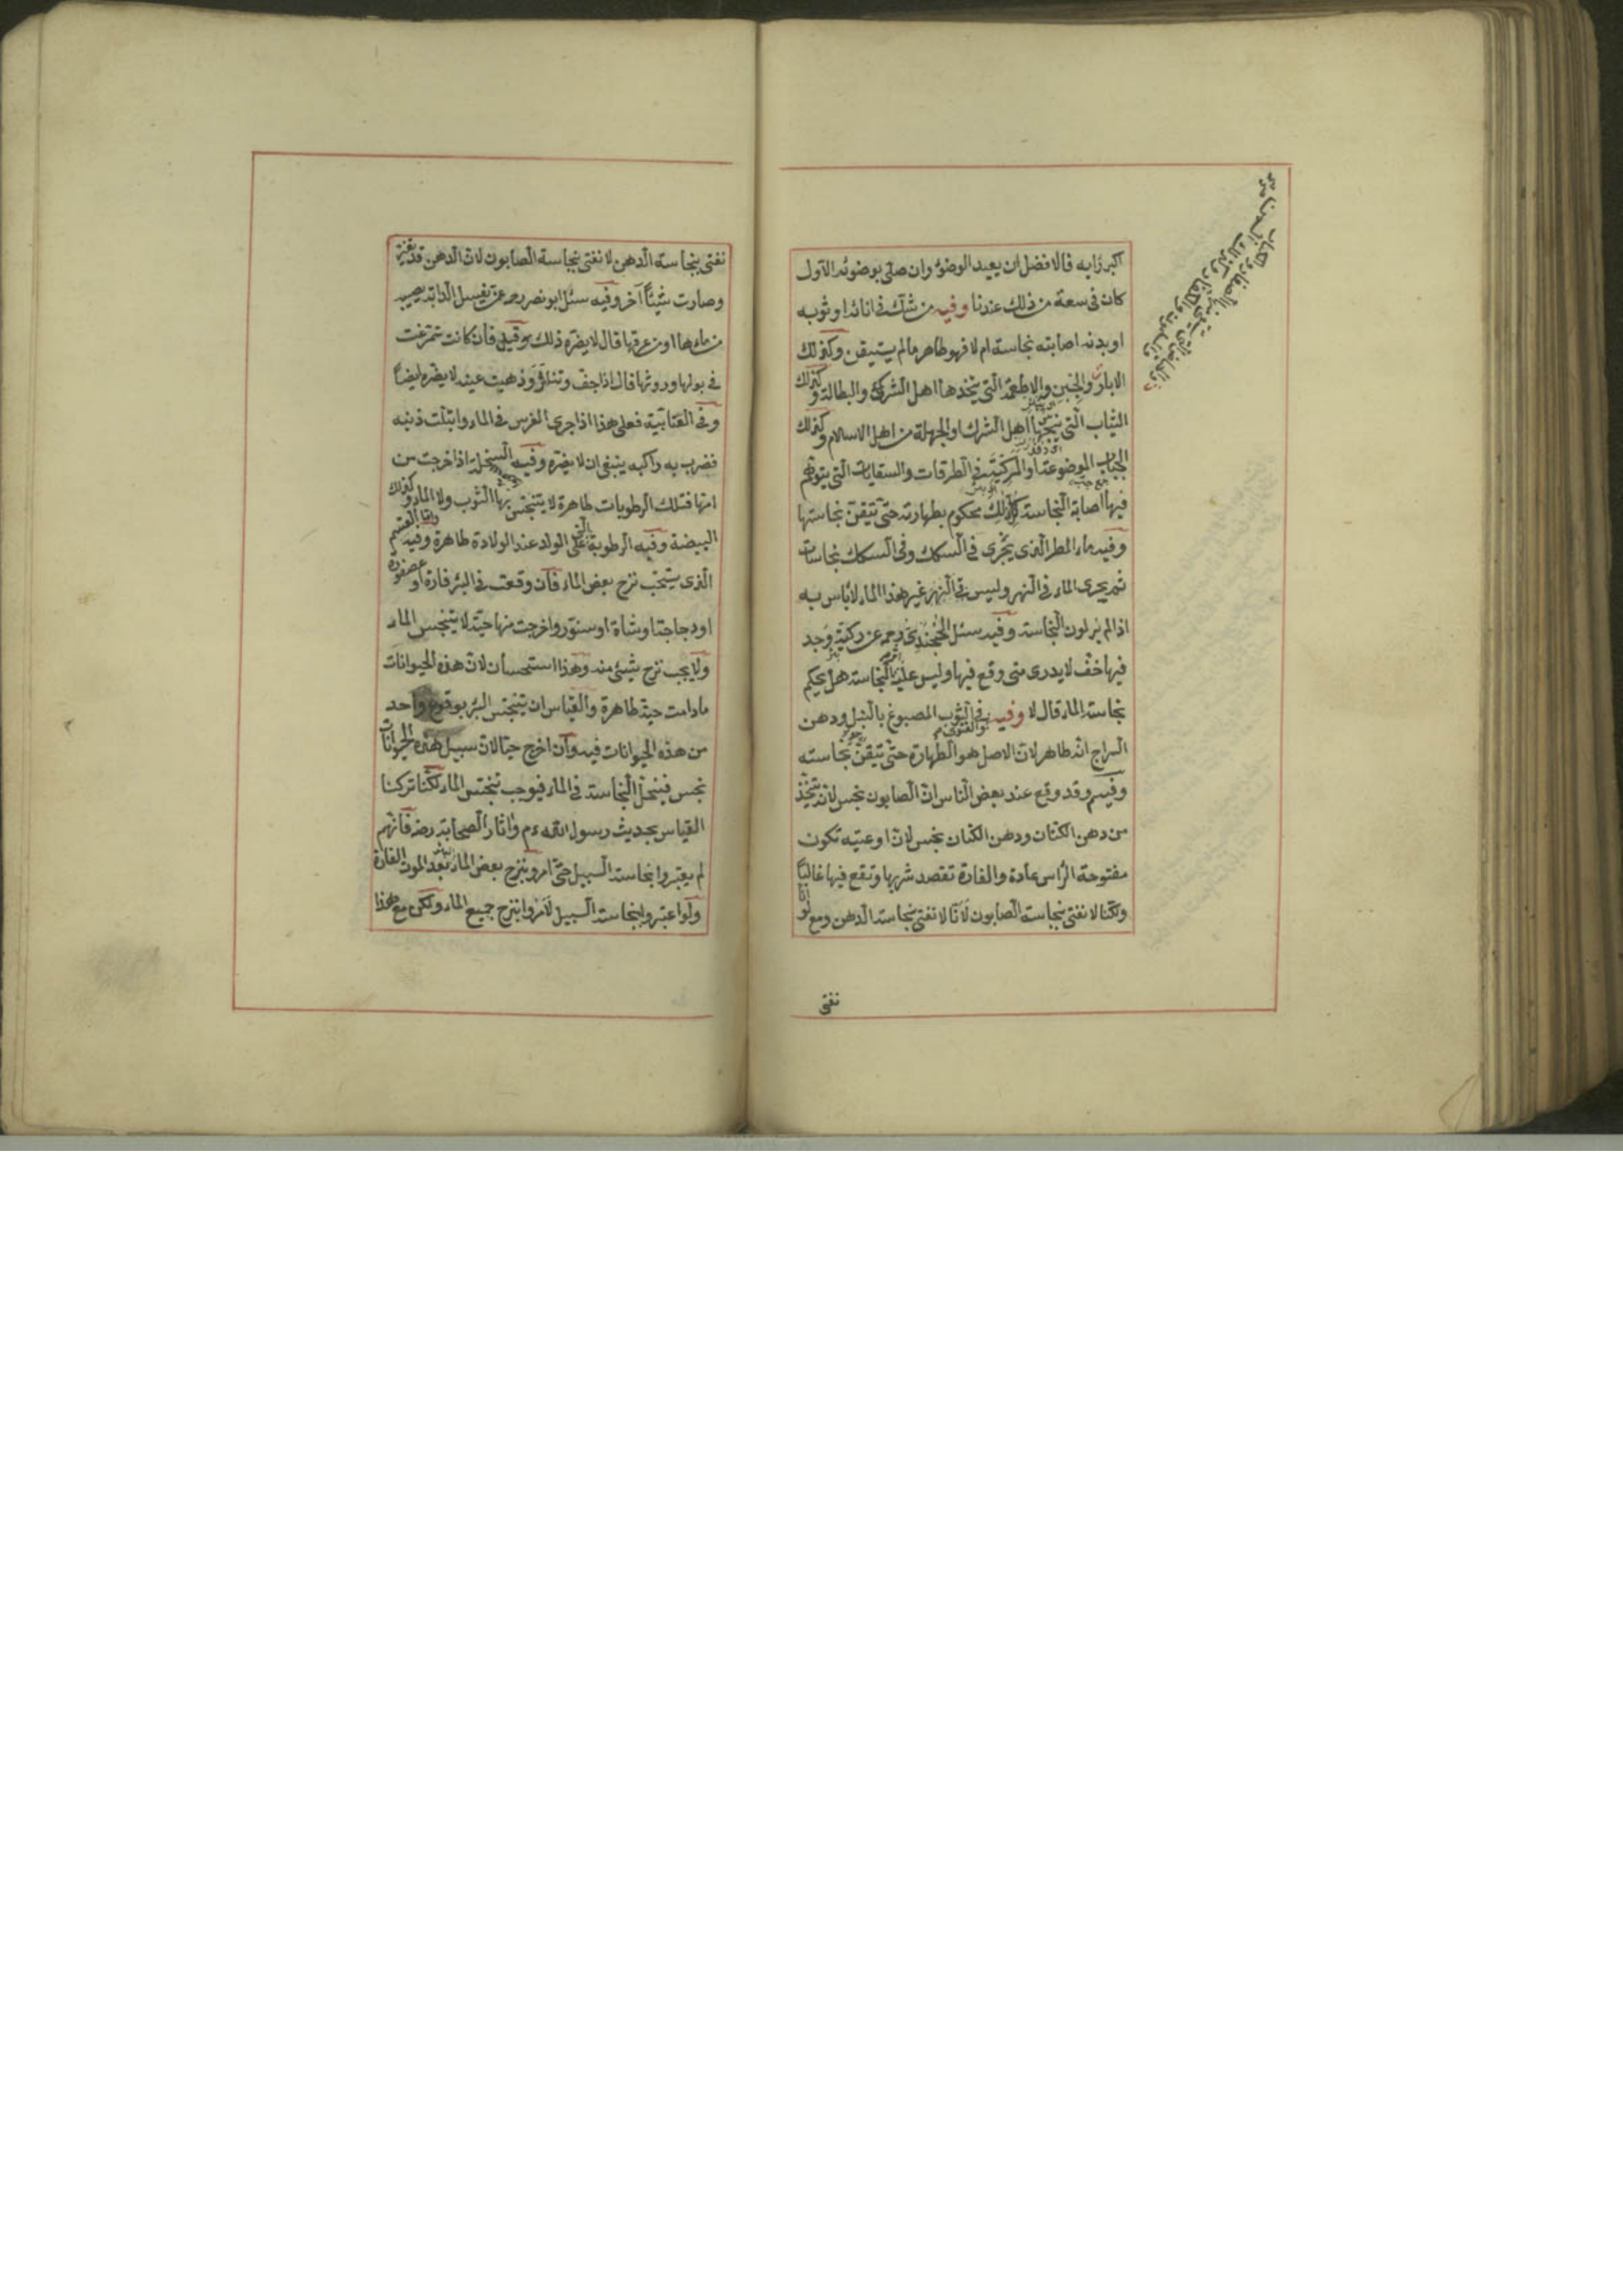 اكبر رايه فالافضل ان يعيد الوضوء وان صلى بوضوئه الاول
كان في سعة من ذلك عندنا وفيه من شك في انائه او ثوبه
او بدنه اصابته نجاسة ام لا فهو طاهر ما لم يستيقن وكذلك
الابار والجبن والاطعمة التي يتخذها اهل الشرك والبطالة وكذلك
الثياب التي ينسجها اهل الشرك او الجهلة من اهل الاسلام وكذلك
الجباب الموضوعة او المركبة في الطرقات والسقايات التي يتوهم
فيها اصابة النجاسة كل ذلك محكوم بطهارته حتى تيقن نجاستها
وفيه ماء المطر الذي يجري في السكك وفي السكك نجاسات
ثم يجري الماء في النهر وليس في النهر غير هذا الماء لا بأس به
اذا لم ير لون النجاسة وفيه سئل الخجندي رحمه عن ركية وجد
فيها خف لا يدرى متى وقع فيها وليس عليه اثر النجاسة هل يحكم
بنجاسة الماء قال لا وفيه في الثوب المصبوغ بالنيل ودهن
السراج انه طاهر لان الاصل هو الطهارة حتى تيقن نجاسته
وفيه وقد وقع عند بعض الناس ان الصابون نجس لانه يتخذ
من دهن الكتان ودهن الكتان نجس لان اوعيته تكون
مفتوحة الرأس عادة والفارة تقصد شربها وتقع فيها غالبا
ولكنا لا نفتي بنجاسة الصابون لانا لا نفتي بنجاسة الدهن ومع لو انا
نفتي
نفتي بنجاسة الدهن لا نفتي بنجاسة الصابون لان الدهن قد تغير
وصارت شيئا آخر وفيه سئل ابو نصر رحه عمن يغسل الدابة يصيبه
من مائها او من عرقها قال لا يضره ذلك وقيل فان كانت تمرغت
في بولها وروثها قال اذا جف وتناثر وذهبت عينه لا يضره ايضا
وفي العتابية فعلى هذا اذا جرى الفرس في الماء وابتلت ذنبه
فضرب به راكبه ينبغي ان لا يضره وفيه السخلة اذا خرجت من
امها فتلك الرطوبات طاهرة لا يتنجس بها الثوب ولا الماء وكذلك
البيضة وفيه الرطوبة التي على الولد عند الولادة طاهرة وفيه واما القسم
الذي يستحب نزح بعض الماء فان وقعت في البئر فارة او عصفورة
او دجاجة او شاة او سنور واخرجت منها حية لا يتنجس الماء
ولا يجب نزح شيئ منه وهذا استحسان لان هذه الحيوانات
ما دامت حية طاهرة والقياس ان يتنجس البئر بوقوع واحد
من هذه الحيوانات فيه وان اخرج حيا لان سبيل هذه الحيوانات
نجس فينحل النجاسة في الماء فيوجب تنجس الماء لكنا تركنا
القياس بحديث رسول الله عم واثار الصحابة رضه فانهم
لم يعتبروا نجاسة السبيل حتى امرو بنزح بعض الماء بعد الموت الفارة
ولو اعتبروا نجاسة السبيل لامروا بنزح جميع الماء ولكن مع هذا